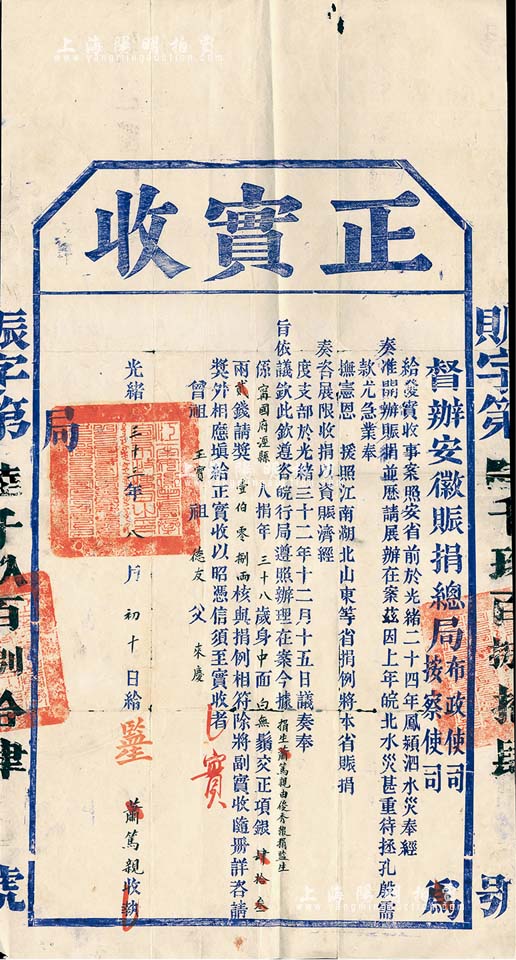 上海陽明拍賣
www.yangmingauction.com
正實收
督辦安徽賑捐總局布政使司按察使司 為
給發實收事案照安省前於光緒二十四年鳳潁泗水災奉經
奏准開辦賑捐並歷請展辦在案茲因上年皖北水災甚重待拯孔殷需
款尤急業奉
撫憲恩 援照江南湖北山東等省捐例將本省賑捐
奏咨展限收捐以資賑濟經
度支部於光緒三十二年十二月十五日議奏奉
旨依議欽此欽遵咨皖行局遵照辦理在案今據捐生蕭篤親由俊秀報捐監生
係寧國府涇縣 人捐年三十八歲身中面白無鬚交正項銀肆拾叁
兩貳錢請獎 壹伯零捌兩核與捐例相符除將副實收隨册詳咨請
獎外相應填給正實收以昭憑信須至實收者
曾祖 玉寶 祖 德友 父 來慶
光緒三十 年八月初十日給
蕭篤親收執
局
實
監
賑字第
百
號
賑字第
陸千玖百捌拾肆
號